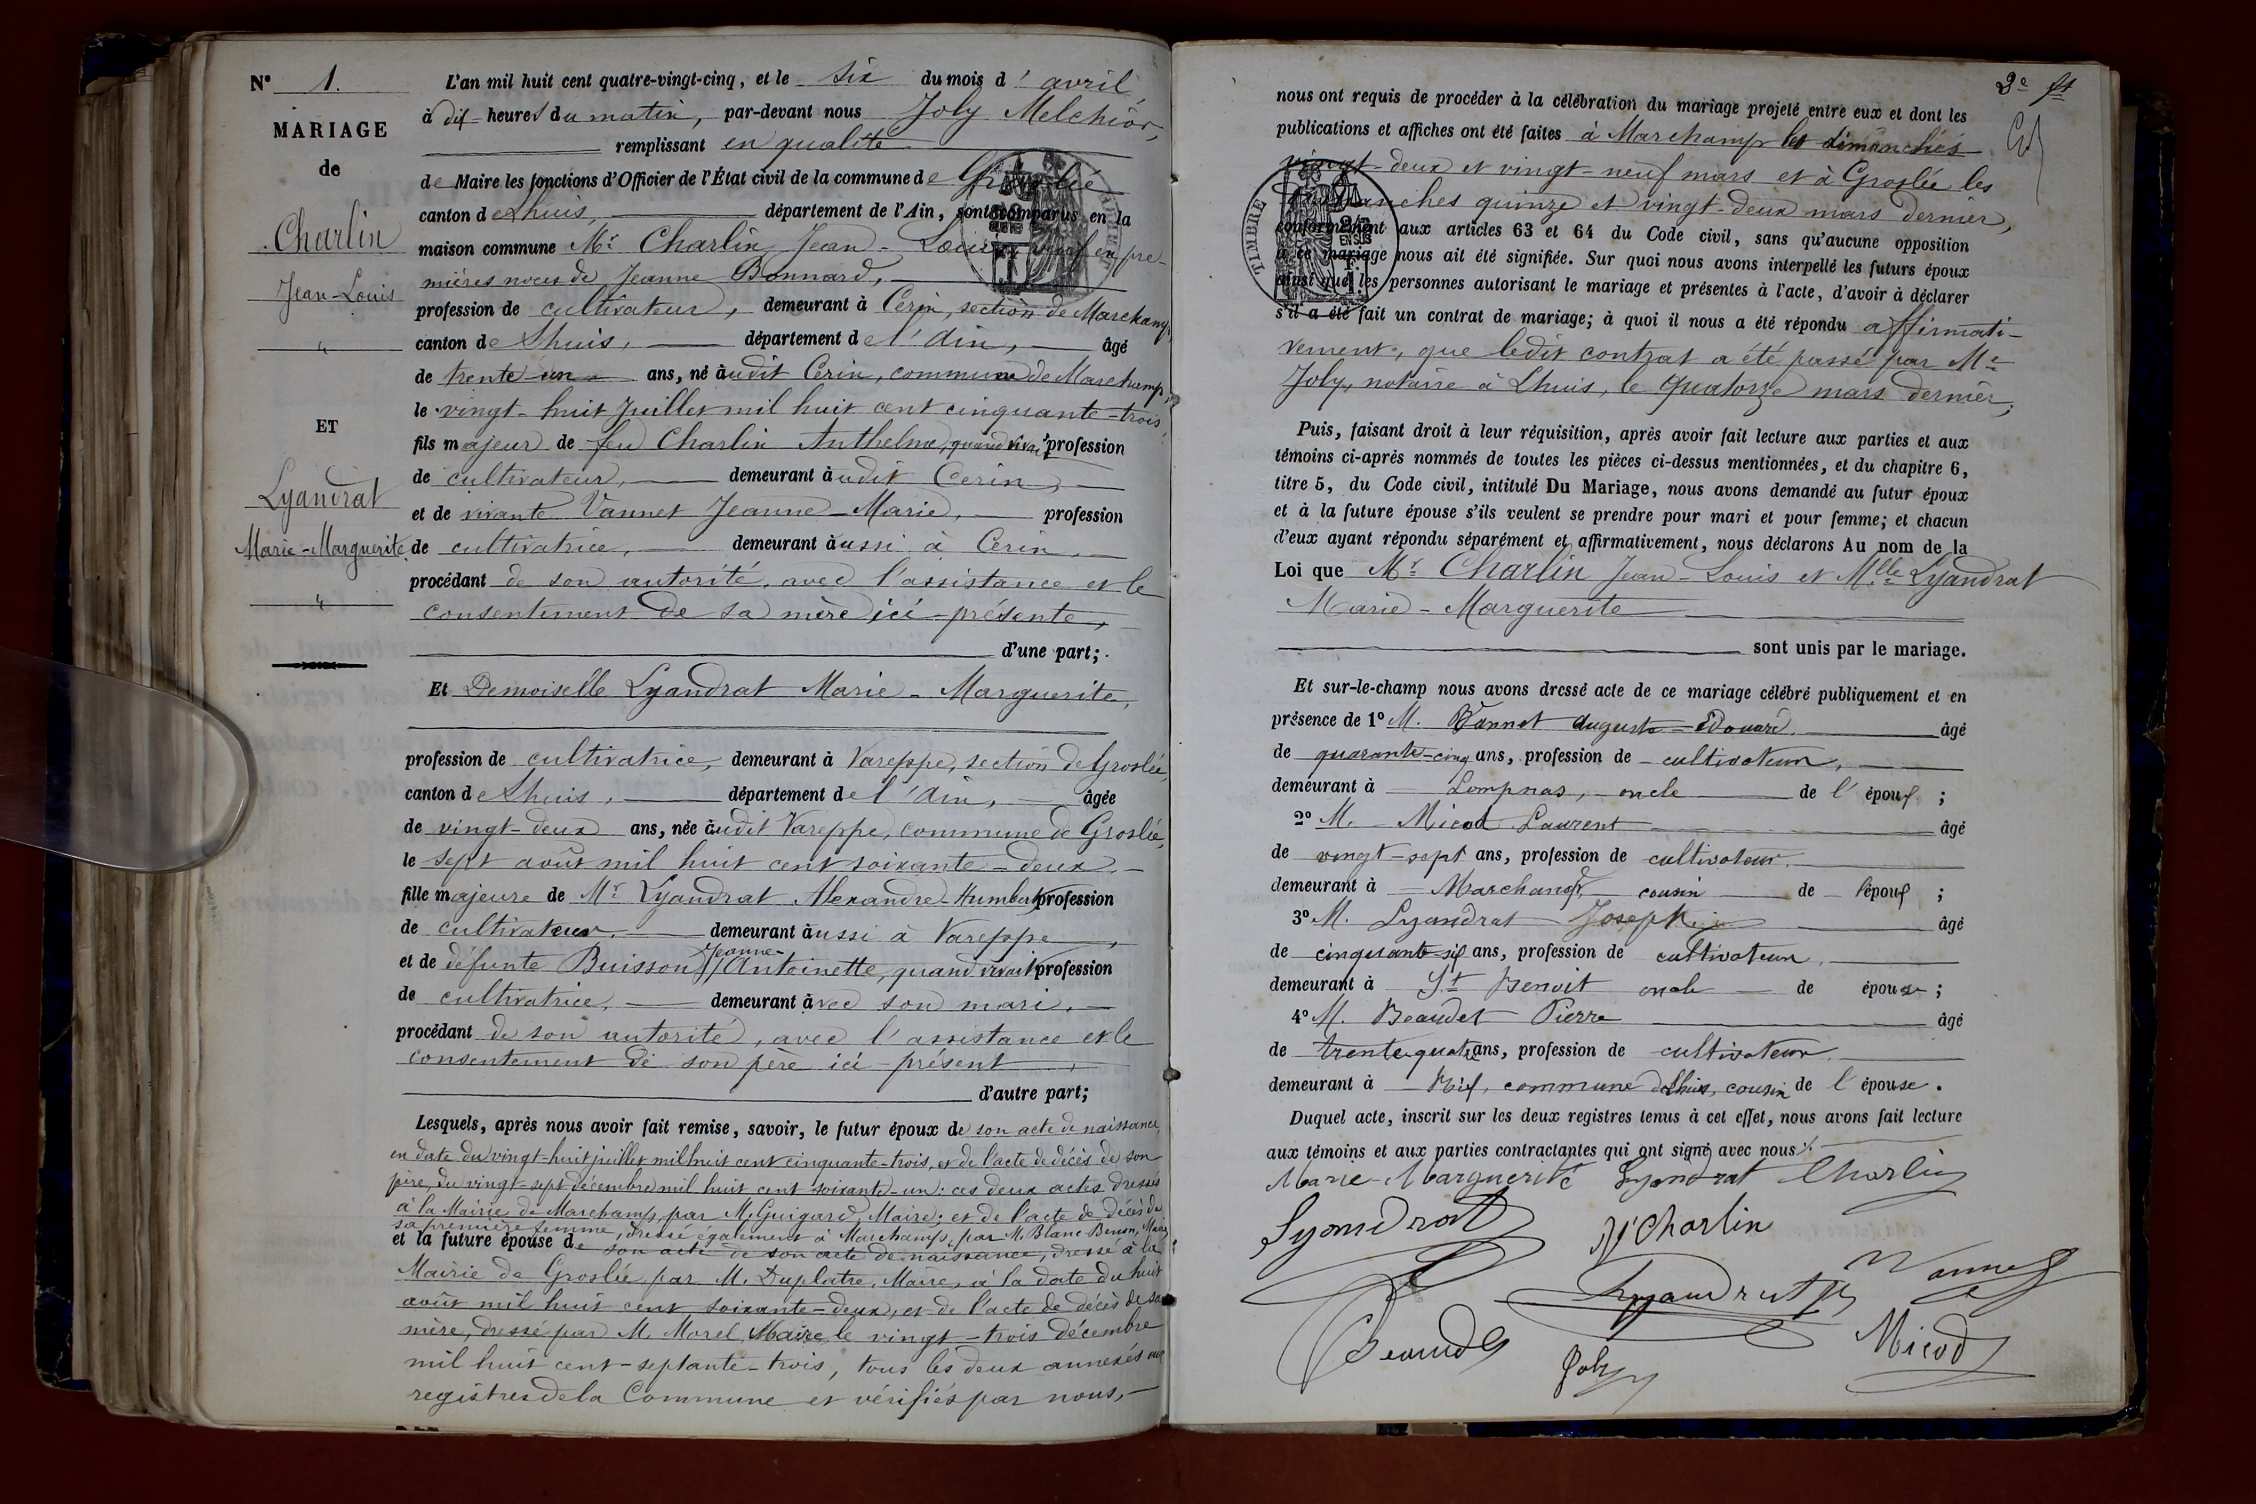 N° 1.
MARIAGE
de
Charlin
Jean-Louis
"
ET
Lyandrat
Marie-Marguerite
"
L'an mil huit cent quatre-vingt-cinq, et le six du mois d'avril,
à dix heures du matin, par-devant nous Joly Melchior,
remplissant en qualité
de Maire les fonctions d'Officier de l'État civil de la commune de Groslée
canton de Lhuis, département de l'Ain, sont comparus en la
maison commune Mr Charlin Jean-Louis veuf en pre-
mières noces de Jeanne Bonnard,
profession de cultivateur, demeurant à Cerin, section de Marchamp,
canton de Lhuis, département de l'Ain, âgé
de trente-un ans, né audit Cerin, commune de Marchamp,
le vingt-huit Juillet mil huit cent cinquante-trois
fils majeur de feu Charlin Anthelme, quand vivait profession
de cultivateur, demeurant audit Cerin,
et de vivante Vannet Jeanne-Marie, profession
de cultivatrice, demeurant aussi à Cerin,
procédant de son autorité, avec l'assistance et le
consentement de sa mère ici-présente,
d'une part;
Et Demoiselle Lyandrat Marie-Marguerite,
profession de cultivatrice, demeurant à Vareppe, section de Groslée,
canton de Lhuis, département de l'Ain, âgée
de vingt-deux ans, née audit Vareppe, commune de Groslée,
le sept août mil huit cent soixante-deux,
fille majeure de Mr Lyandrat Alexandre-Humbert, profession
de cultivateur, demeurant aussi à Vareppe,
et de défunte Buisson Jeanne-Antoinette, quand vivait profession
de cultivatrice, demeurant avec son mari,
procédant de son autorité, avec l'assistance et le
consentement de son père ici-présent,
d'autre part;
Lesquels, après nous avoir fait remise, savoir, le futur époux de son acte de naissance,
en date du vingt-huit juillet mil huit cent cinquante-trois, et de l'acte de décès de son
père, du vingt-sept décembre mil huit cent soixante-un; ces deux actes dressés
à la Mairie de Marchamp, par M. Guigard, Maire; et de l'acte de décès de
sa première femme, dressé également à Marchamp, par M. Blanc Benon, Maire
et la future épouse de son acte de son acte de naissance, dressé à la
Mairie de Groslée par M. Duplatre, Maire, à la date du huit
août mil huit cent soixante-deux, et de l'acte de décès de sa
mère, dressé par M. Morel, Maire, le vingt-trois décembre
mil huit cent-septante-trois, tous les deux annexés aux
registres de la Commune et vérifiés par nous,
2e
nous ont requis de procéder à la célébration du mariage projeté entre eux et dont les
publications et affiches ont été faites à Marchamp les dimanches
vingt-deux et vingt-neuf mars et à Groslée les
dimanches quinze et vingt-deux mars dernier,
conformément aux articles 63 et 64 du Code civil, sans qu'aucune opposition
à ce mariage nous ait été signifiée. Sur quoi nous avons interpellé les futurs époux
ainsi que les personnes autorisant le mariage et présentes à l'acte, d'avoir à déclarer
s'il a été fait un contrat de mariage; à quoi il nous a été répondu affirmati-
vement, que ledit contrat a été passé par Me
Joly, notaire à Lhuis, le quatorze mars dernier,
TIMBRE
Puis, faisant droit à leur réquisition, après avoir fait lecture aux parties et aux
témoins ci-après nommés de toutes les pièces ci-dessus mentionnées, et du chapitre 6,
titre 5, du Code civil, intitulé Du Mariage, nous avons demandé au futur époux
et à la future épouse s'ils veulent se prendre pour mari et pour femme; et chacun
d'eux ayant répondu séparément et affirmativement, nous déclarons Au nom de la
Loi que Mr Charlin Jean-Louis et Melle Lyandrat
Marie-Marguerite
sont unis par le mariage.
Et sur-le-champ nous avons dressé acte de ce mariage célébré publiquement et en
présence de 1° M. Vannet Auguste-Edouard âgé
de quarante-cinq ans, profession de cultivateur,
demeurant à Lompnas, oncle de l'époux;
2° M. Micod Laurent âgé
de vingt-sept ans, profession de cultivateur
demeurant à Marchamp, cousin de l'époux;
3° M. Lyandrat Joseph âgé
de cinquante-six ans, profession de cultivateur,
demeurant à St Benoit oncle de épouse;
4° M. Beaudet Pierre âgé
de trente-quatre ans, profession de cultivateur,
demeurant à Rix, commune de Lhuis, cousin de l'épouse.
Duquel acte, inscrit sur les deux registres tenus à cet effet, nous avons fait lecture
aux témoins et aux parties contractantes qui ont signé avec nous.
Marie-Marguerite Lyandrat Charlin
Lyandrat Charlin
Lyandrat Vannet
Beaudet Joly Micod